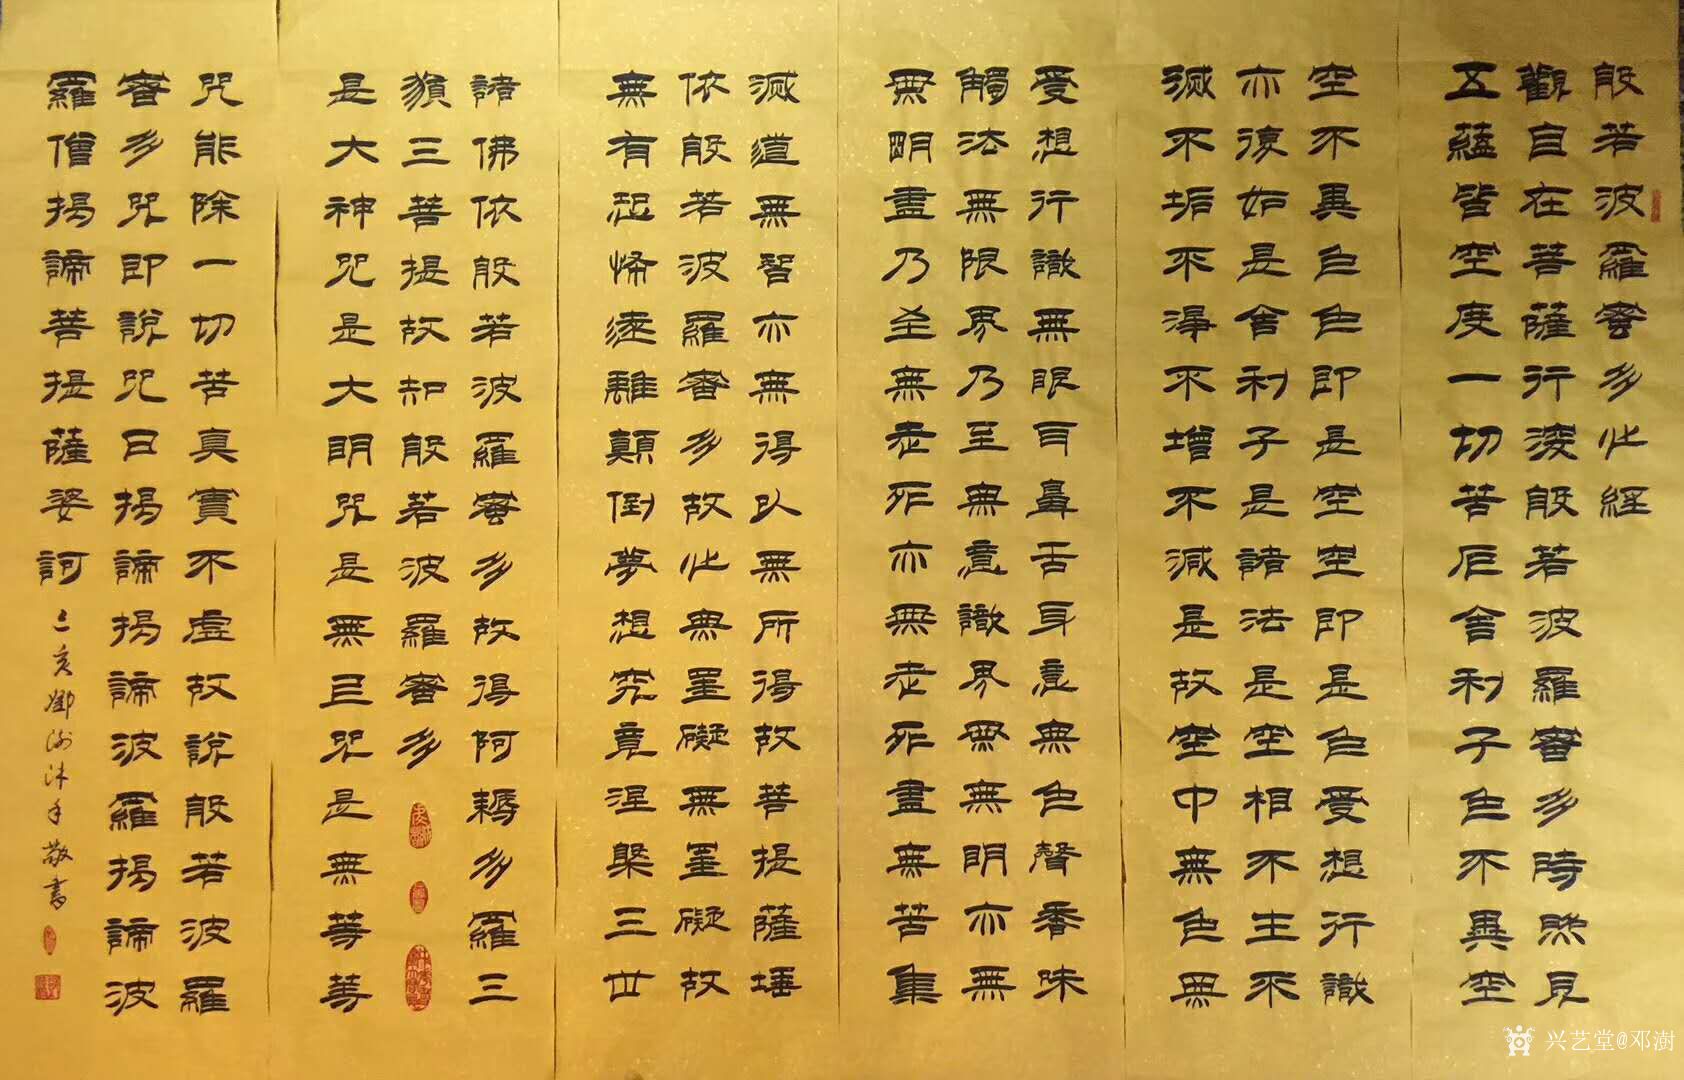 般若波羅蜜多心經
觀自在菩薩行深般若波羅蜜多時照見
五蘊皆空度一切苦厄舍利子色不異空
空不異色色即是空空即是色受想行識
亦復如是舍利子是諸法是空相不生不
滅不垢不淨不增不減是故空中無色無
受想行識無眼耳鼻舌身意無色聲香味
觸法無限界乃至無意識界無無明亦無
無明盡乃至無老死亦無老死盡無苦集
滅道無智亦無得以無所得故菩提薩埵
依般若波羅蜜多故心無罣礙無罣礙故
無有恐怖遠離顛倒夢想究竟涅槃三世
諸佛依般若波羅蜜多故得阿耨多羅三
藐三菩提故知般若波羅蜜多
是大神咒是大明咒是無上咒是無等等
咒能除一切苦真實不虛故說般若波羅
蜜多咒即說咒曰揭諦揭諦波羅揭諦波
羅僧揭諦菩提薩婆訶
己亥鄧澍沐手敬書
兴艺堂@邓澍